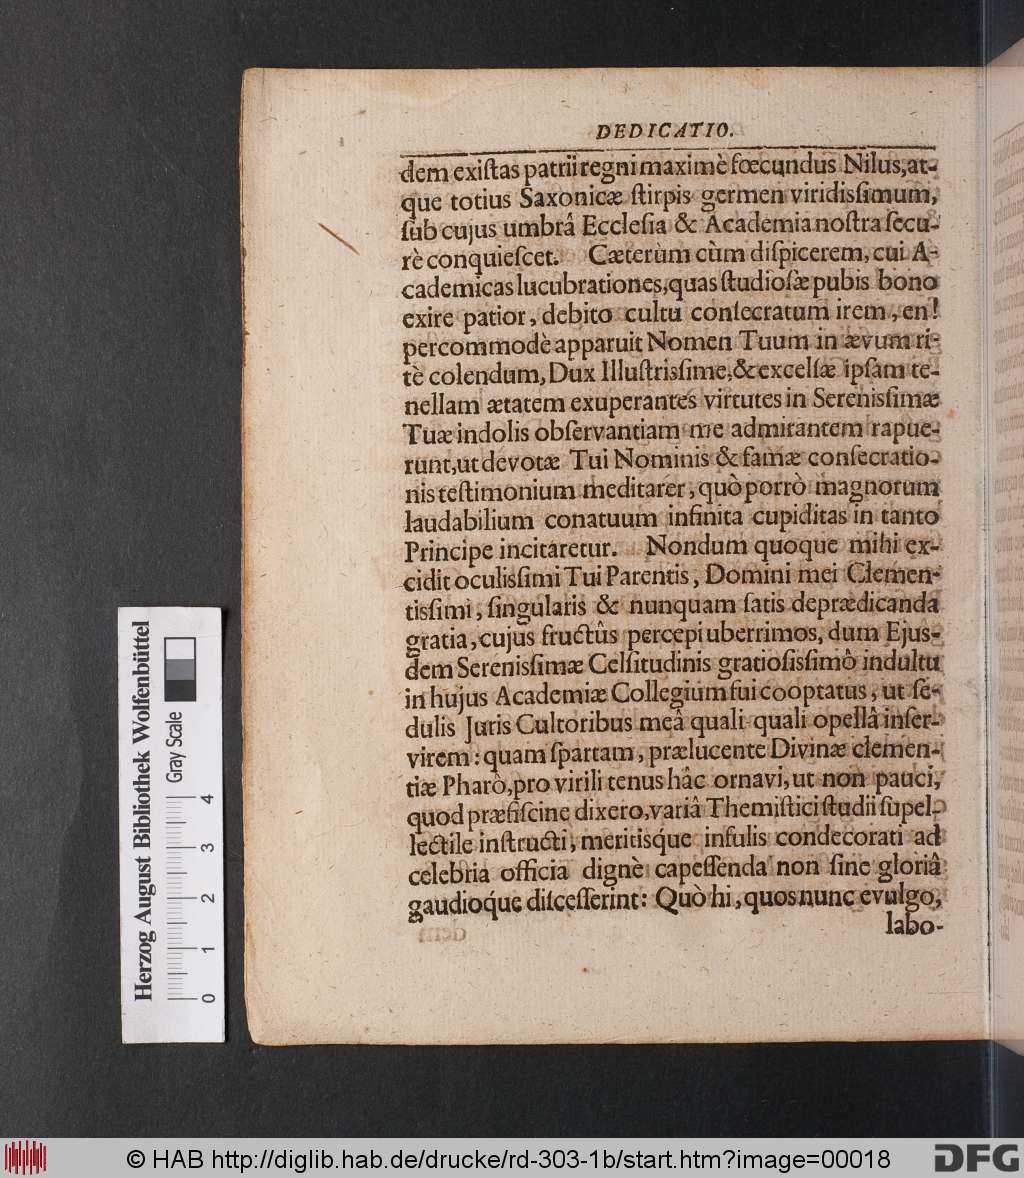 DEDICATIO.
dem exiſtas patrii regni maximè fœcundus Nilus, at-
que totius Saxonicæ ſtirpis germen viridiſſimum,
ſub cujus umbrâ Eccleſia & Academia noſtra ſecu-
rè conquieſcet. Cæterùm cùm diſpicerem, cui A-
cademicas lucubrationes, quas ſtudioſæ pubis bono
exire patior, debito cultu conſecratum irem, en!
percommodè apparuit Nomen Tuum in ævum ri-
tè colendum, Dux Illuſtriſſime, & excelſæ ipſam te-
nellam ætatem exuperantes virtutes in Sereniſſimæ
Tuæ indolis obſervantiam me admirantem rapue-
runt, ut devotæ Tui Nominis & famæ conſecratio-
nis teſtimonium meditarer, quò porrò magnorum
laudabilium conatuum infinita cupiditas in tanto
Principe incitaretur. Nondum quoque mihi ex-
cidit oculiſſimi Tui Parentis, Domini mei Clemen-
tiſſimi, ſingularis & nunquam ſatis deprædicanda
gratia, cujus fructûs percepi uberrimos, dum Ejus-
dem Sereniſſimæ Celſitudinis gratioſiſſimò indultu
in hujus Academiæ Collegium fui cooptatus, ut ſe-
dulis Juris Cultoribus meâ quali quali opellâ inſer-
virem: quam ſpartam, prælucente Divinæ clemen-
tiæ Pharò, pro virili tenus hâc ornavi, ut non pauci,
quod præfiſcine dixero, variâ Themiſtici ſtudii ſupel-
lectile inſtructi, meritisq́ue inſulis condecorati ad
celebria officia dignè capeſſenda non ſine gloriâ
gaudioq́ue diſceſſerint: Quò hi, quos nunc evulgo,
labo-
Herzog August Bibliothek Wolfenbüttel
Gray Scale
0 1 2 3 4
© HAB http://diglib.hab.de/drucke/rd-303-1b/start.htm?image=00018
DFG